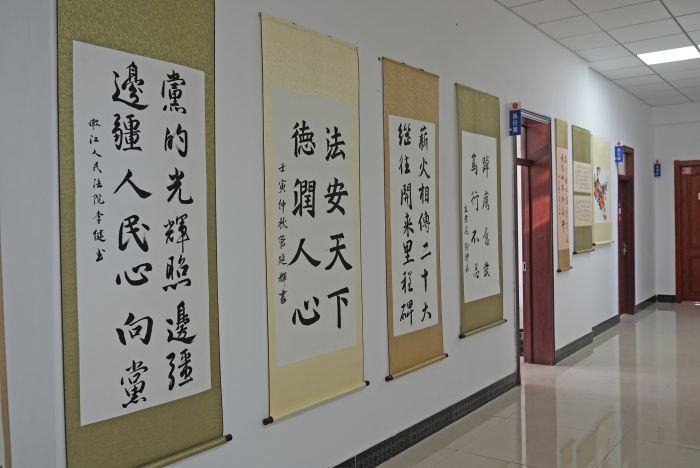 黨的光輝照邊疆
邊疆人民心向黨
嫩江人民法院李健书
法安天下
德潤人心
壬寅仲秋管延輝書
薪火相傳二十大
继往開来里程碑
踔厲奮發
篤行不怠